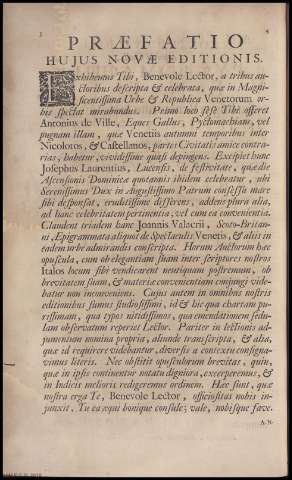 PRÆFATIO
HUJUS NOVÆ EDITIONIS.
Exhibemus Tibi, Benevole Lector, a tribus au-
ctoribus descripta & celebrata, quæ in Magni-
ficentissima Urbe & Republica Venetorum or-
bis spectat mirabundus. Primo loco sese Tibi offeret
Antonius de Ville, Eques Gallus, Pyctomachiam, vel
pugnam illam, quæ Venetiis autumni temporibus inter
Nicolotos, & Castellanos, partes Civitatis amice contra-
rias, habetur, vividissime quasi depingens. Excipiet hunc
Josephus Laurentius, Lucensis, de festivitate, quæ die
Ascensionis Dominicæ quotannis ibidem celebratur, ubi
Serenissimus Dux in Augustissimo Patrum consessu mare
sibi desponsat, eruditissime disserens, addens plura alia,
ad hanc celebritatem pertinentia, vel cum ea convenientia.
Claudent triadem hanc Joannis Valacrii, Scoto-Britan-
ni, Epigrammata aliquot de Spectandis Venetiis, & aliis in
eadem urbe admirandis conscripta. Horum Auctorum hæc
opuscula, cum ob elegantiam suam inter scriptores nostros
Italos locum sibi vendicarent neutiquam postremum, ob
brevitatem suam, & materiæ convenientiam conjungi vide-
batur non inconveniens. Cujus autem in omnibus nostris
editionibus sumus studiosissimi, id & hic qua chartam pu-
rissimam, qua typos nitidissimos, qua emendationem sedu-
lam observatum reperiet Lector. Pariter in lectionis ad-
jumentum nomina propria, aliunde transcripta, & alia,
quæ id requirere videbantur, diversis a contextu consigna-
vimus literis. Nec obstitit opusculorum brevitas, quin,
quæ in ipsis continentur notatu digniora, excerperemus, &
in Indicis melioris redigeremus ordinem. Hæc sunt, quæ
nostra erga Te, Benevole Lector, officiositas nobis in-
junxit. Tu ea æqui bonique consule; vale, nobisque fave.